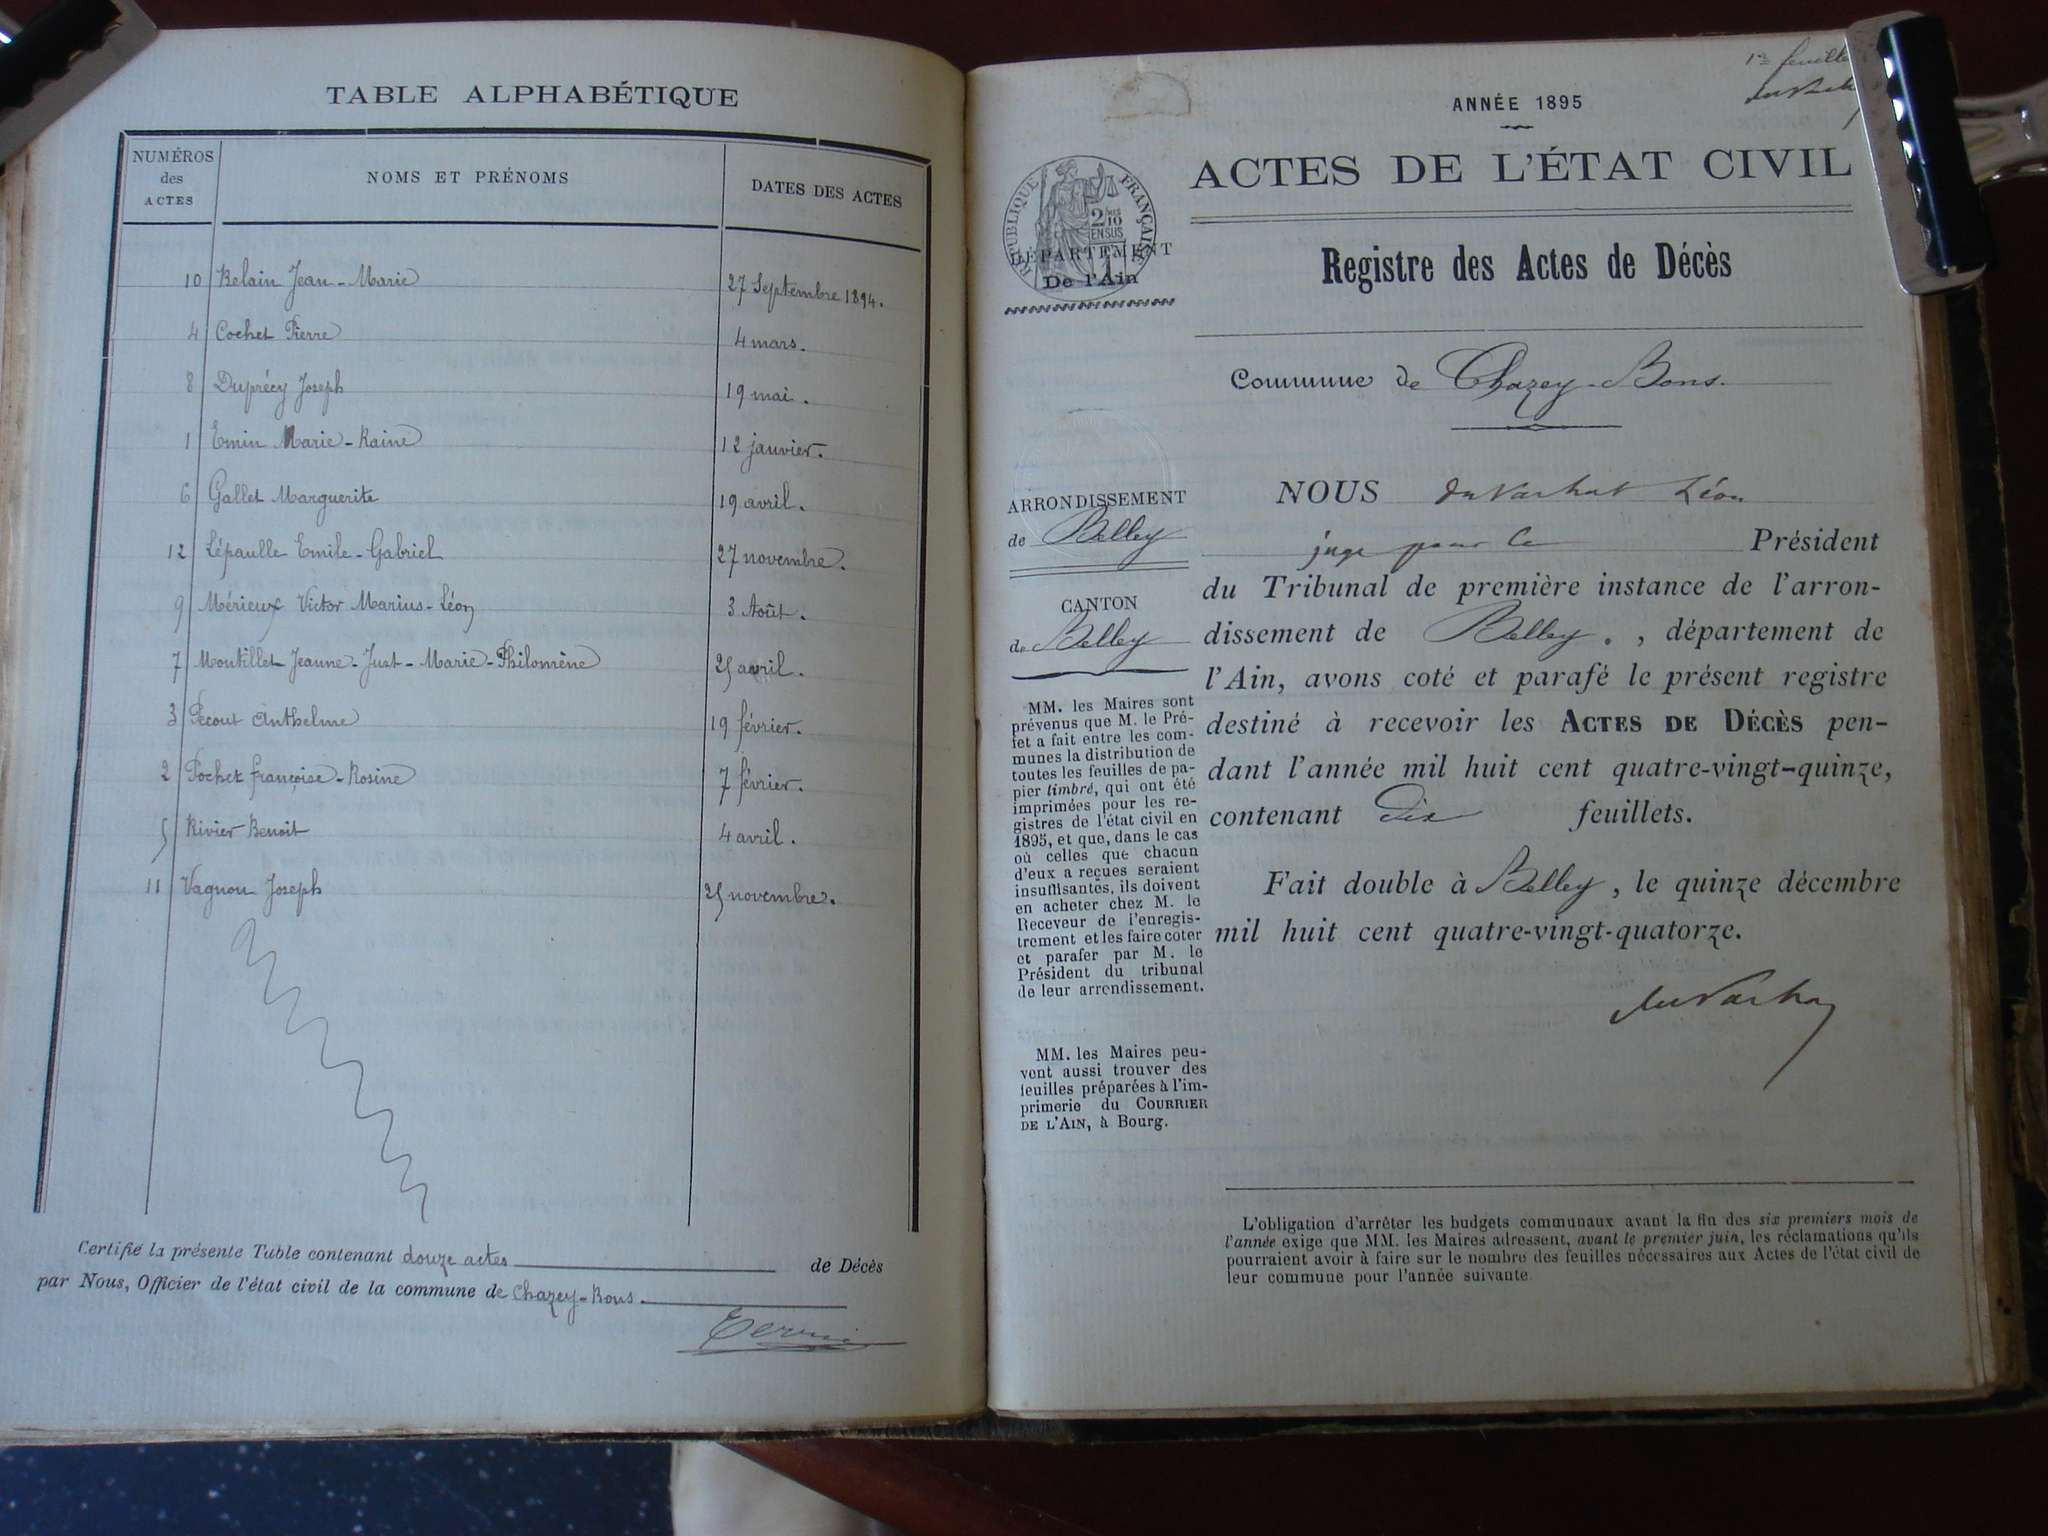 TABLE ALPHABÉTIQUE
NUMÉROS des ACTES
NOMS ET PRÉNOMS
DATES DES ACTES
10 Belain Jean-Marie 27 Septembre 1894.
4 Cochet Pierre 4 mars.
8 Duprécy Joseph 19 mai.
1 Emin Marie-Raine 12 janvier.
6 Gallet Marguerite 19 avril.
12 Lépaulle Emile-Gabriel 27 novembre.
9 Mérieux Victor Marius-Léon 3 Août.
7 Montillet Jeanne-Just-Marie-Philomène 25 avril.
3 Pecout Anthelme 19 février.
2 Pochet françoise-Rosine 7 février.
5 Rivier Benoit 4 avril.
11 Vagnon Joseph 25 novembre.
Certifié la présente Table contenant douze actes de Décès
par Nous, Officier de l'état civil de la commune de Chazey-Bons.
1er feuillet
ANNÉE 1895
ACTES DE L'ÉTAT CIVIL
RÉPUBLIQUE FRANÇAISE
2/10 EN SUS
DÉPARTEMENT
De l'Ain
Registre des Actes de Décès
Commune de Chazey-Bons.
ARRONDISSEMENT
de Belley
CANTON
de Belley
MM. les Maires sont
prévenus que M. le Pré-
fet a fait entre les com-
munes la distribution de
toutes les feuilles de pa-
pier timbré, qui ont été
imprimées pour les re-
gistres de l'état civil en
1895, et que, dans le cas
où celles que chacun
d'eux a reçues seraient
insuffisantes, ils doivent
en acheter chez M. le
Receveur de l'enregis-
trement et les faire coter
et parafer par M. le
Président du tribunal
de leur arrondissement.
MM. les Maires peu-
vent aussi trouver des
feuilles préparées à l'im-
primerie du COURRIER
DE L'AIN, à Bourg.
NOUS Duvachat Léon
juge pour le Président
du Tribunal de première instance de l'arron-
dissement de Belley. , département de
l'Ain, avons coté et parafé le présent registre
destiné à recevoir les ACTES DE DÉCÈS pen-
dant l'année mil huit cent quatre-vingt-quinze,
contenant Dix feuillets.
Fait double à Belley, le quinze décembre
mil huit cent quatre-vingt-quatorze.
L'obligation d'arrêter les budgets communaux avant la fin des six premiers mois de
l'année exige que MM. les Maires adressent, avant le premier juin, les réclamations qu'ils
pourraient avoir à faire sur le nombre des feuilles nécessaires aux Actes de l'état civil de
leur commune pour l'année suivante.